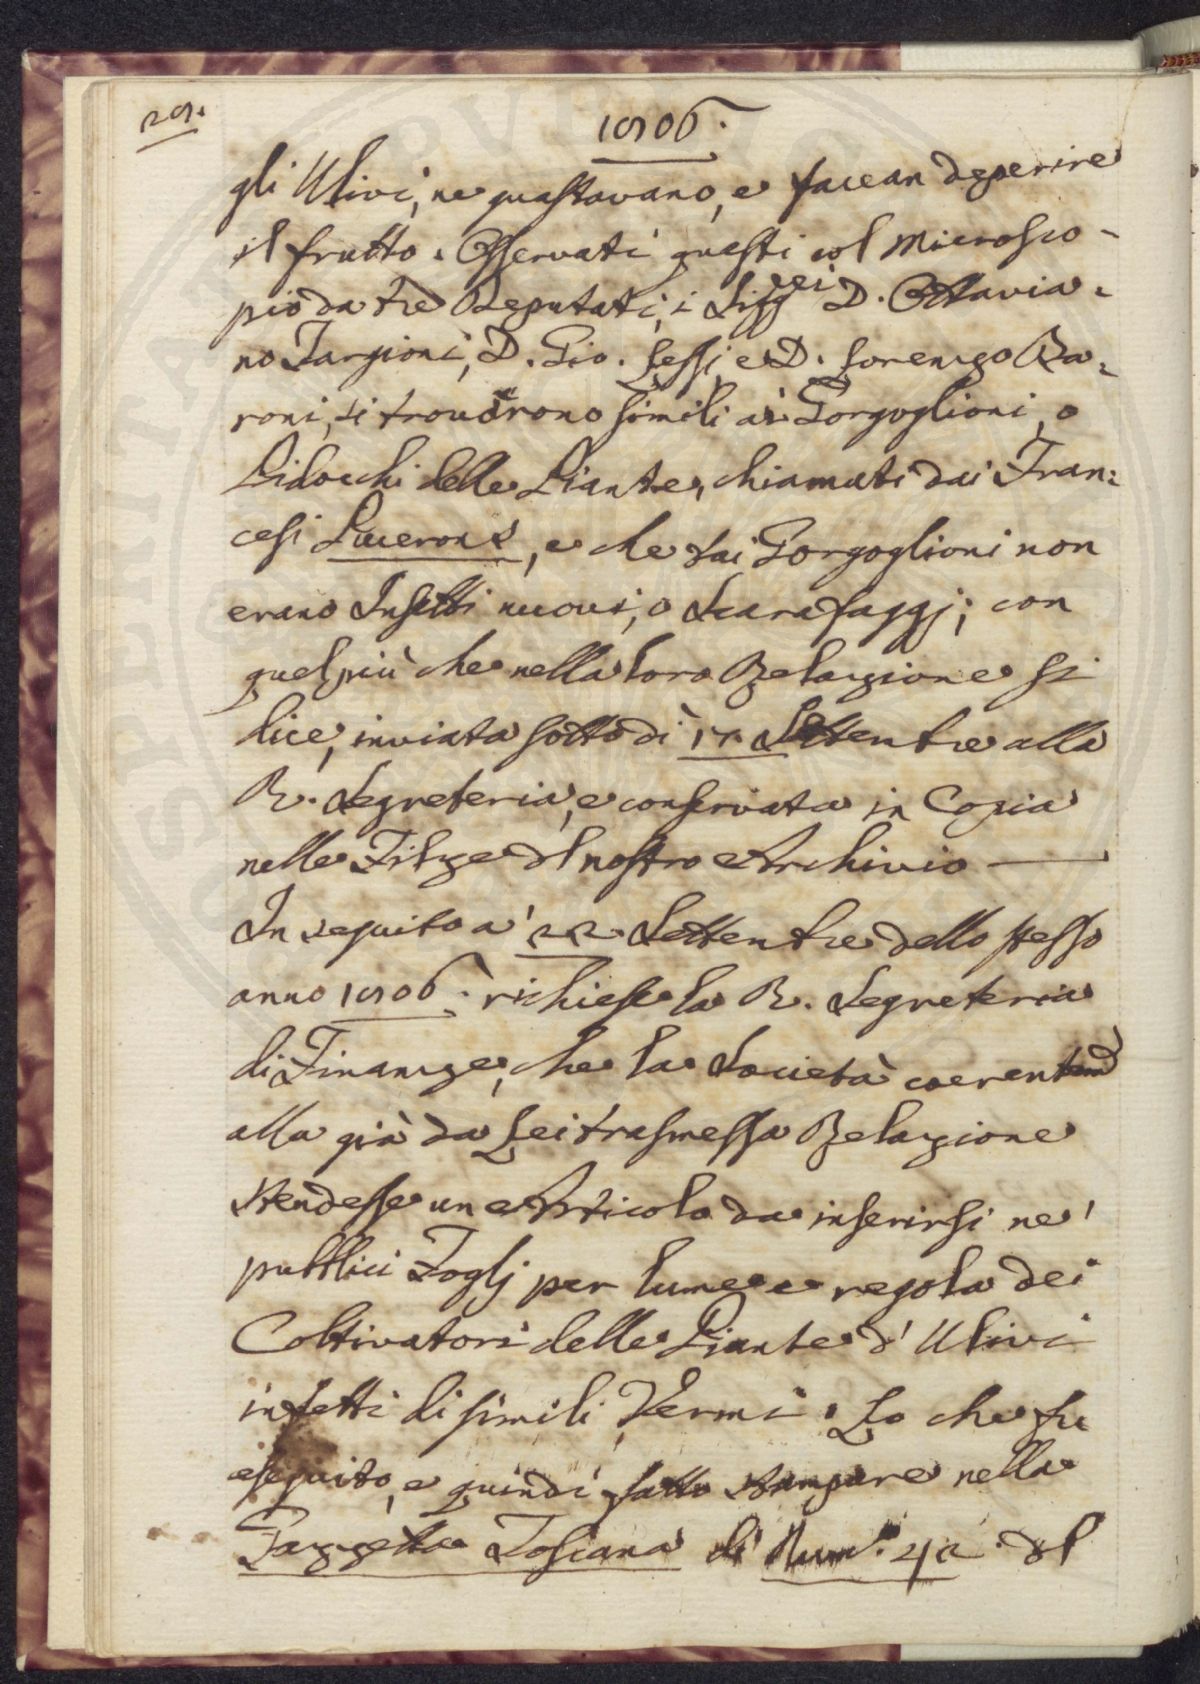 1786.
gli Ulivi, ne guastavano, e facean deperire
il frutto. Osservati questi col Microsco-
pio da tre Deputati, i Sigg.ri D. Ottavia-
no Targioni, D. Gio. Lessi, e D. Lorenzo Ba-
roni, si trovarono simili ai Gorgoglioni, o
Pidocchi delle Piante, chiamati dai Fran-
cesi Pucerons, e che tai Gorgoglioni non
erano Insetti nuovi, o Scarafaggj; con
quel più che nella loro Relazione si
dice, inviata sotto dì Settembre alla
R. Segreteria, e conservata in Copia
nelle Filze del nostro Archivio
In seguito a' 22 Settembre dello stesso
anno 1786. richiese la R. Segreteria
di Finanze, che la Società coerentem
alla già da Lei trasmessa Relazione
stendesse un Articolo da inserirsi ne'
pubblici Foglj per lume e regola dei
Coltivatori delle Piante d' Ulivi
infetti di simili Vermi. Lo che fu
eseguito, e quindi fatto stampare nella
Gazzetta Toscana di Num. del